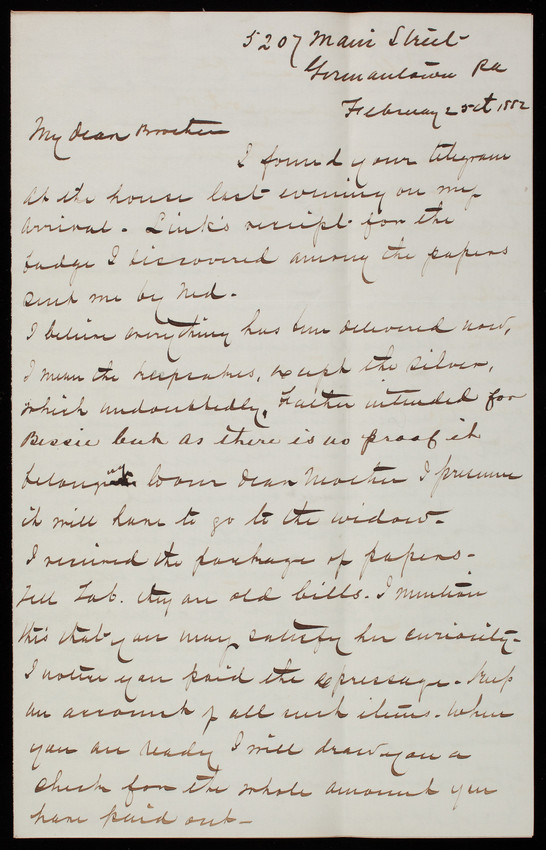 5207 Main Street
Germantown Pa
February 25th 1882
My dear Brother
I found your telegram
at the house last evening on my
arrival - Link's receipt for the
badge I discovered among the papers
sent me by Ned -
I believe everything has been delivered now,
I mean the keepsakes, except the silver,
which undoubtedly, Father intended for
Bessie but as there is no proof it
belonged to our dear Mother I presume
it will have to go to the widow -
I received the package of papers -
Tell Tob. they are old bills - I mention
this that you may satisfy her curiosity -
I notice you paid the expressage - Keep
an account of all such items - When
you are ready I will draw you a
check for the whole amount you
have paid out -